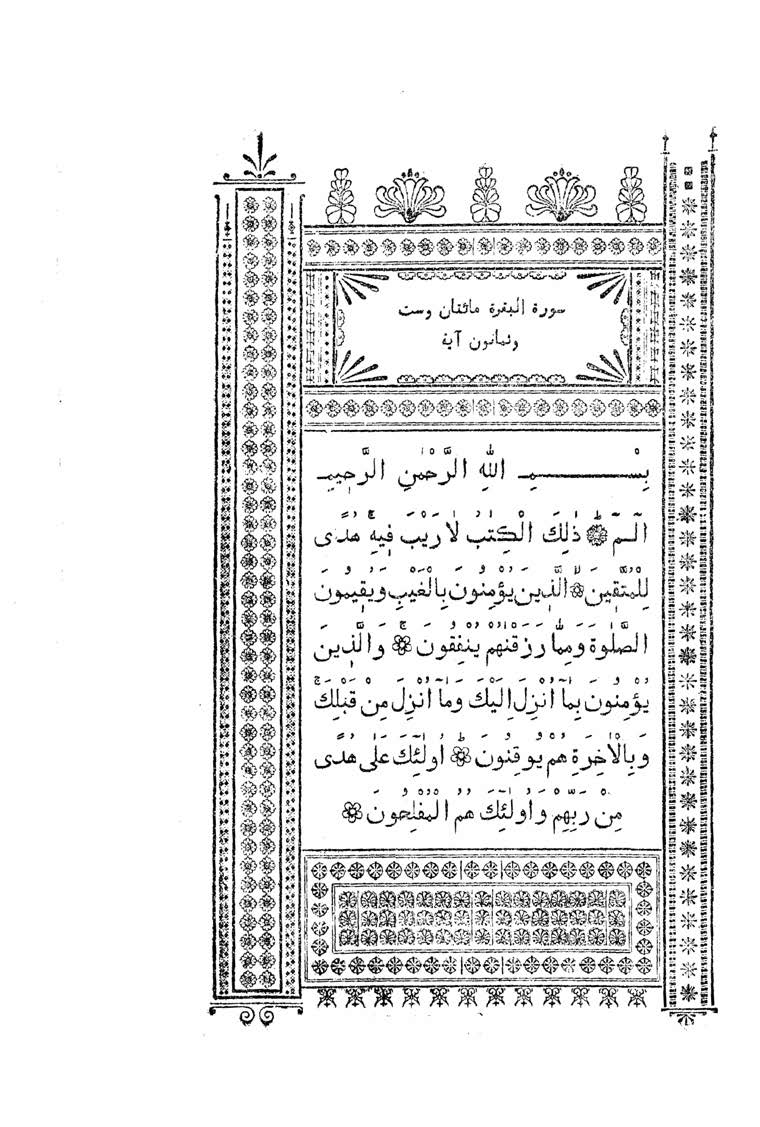 سورة البقرة مائتان وست
وثمانون آية
بِسْمِ اللّٰهِ الرَّحْمٰنِ الرَّحِيمِ
الٓمٓ ۞ ذٰلِكَ الْكِتٰبُ لَا رَيْبَ ۛ فِيهِ ۛ هُدًى
لِلْمُتَّقِينَ ۞ الَّذِينَ يُؤْمِنُونَ بِالْغَيْبِ وَيُقِيمُونَ
الصَّلٰوةَ وَمِمَّا رَزَقْنٰهُمْ يُنْفِقُونَ ۞ وَالَّذِينَ
يُؤْمِنُونَ بِمَٓا اُنْزِلَ اِلَيْكَ وَمَٓا اُنْزِلَ مِنْ قَبْلِكَ ۚ
وَبِالْاٰخِرَةِ هُمْ يُوقِنُونَ ۞ اُولٰٓئِكَ عَلٰى هُدًى
مِنْ رَبِّهِمْ وَاُولٰٓئِكَ هُمُ الْمُفْلِحُونَ ۞